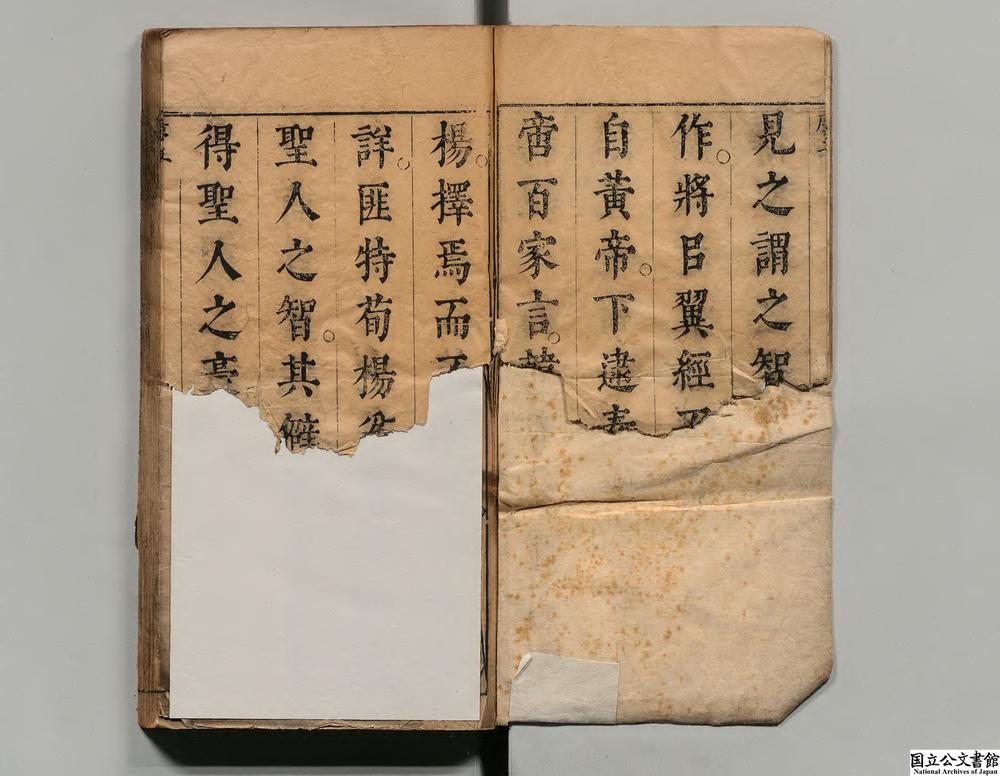 見之謂之智
作。將㠯翼經
自黃帝。下逮
啻百家言。韓
楊。擇焉而不
詳。匪特荀楊
聖人之智。其
得聖人之
国立公文書館
National Archives of Japan